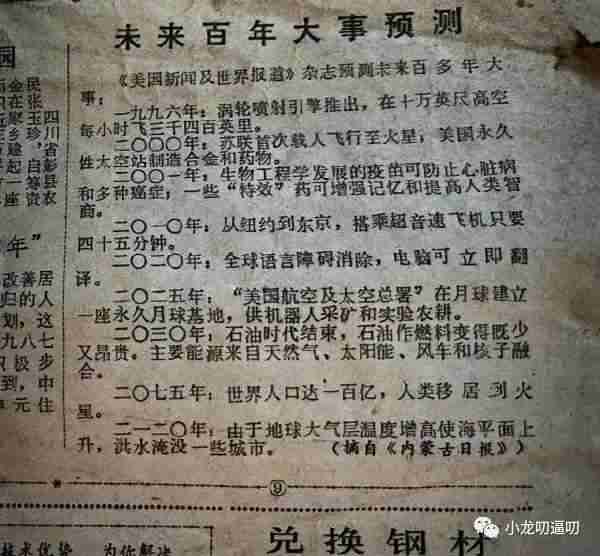 未来百年大事预测
《美国新闻及世界报道》杂志预测未来百多年大
事：
一九九六年：涡轮喷射引擎推出，在十万英尺高空
每小时飞三千四百英里。
二〇〇〇年：苏联首次载人飞行至火星；美国永久
性太空站制造合金和药物。
二〇〇一年：生物工程学发展的疫苗可防止心脏病
和多种癌症；一些“特效”药可增强记忆和提高人类智
商。
二〇一〇年：从纽约到东京，搭乘超音速飞机只要
四十五分钟。
二〇二〇年：全球语言障碍消除，电脑可立即翻
译。
二〇二五年：“美国航空及太空总署”在月球建立
一座永久月球基地，供机器人采矿和实验农耕。
二〇三〇年：石油时代结束，石油作燃料变得既少
又昂贵。主要能源来自天然气、太阳能、风车和核子融
合。
二〇七五年：世界人口达一百亿，人类移居到火
星。
二一二〇年：由于地球大气层温度增高使海平面上
升，洪水淹没一些城市。（摘自《内蒙古日报》）
⑨
园
四川省彭县农
民张玉珍，自筹资
年”
改善居
归的人
划，这
九八七
积极步
到，中
单元住
技术优势 为你解决
兑换钢材
小龙叨逼叨